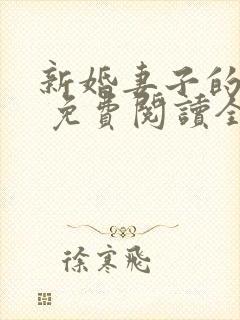 新婚妻子的
免費閱讀全
徐寒飛